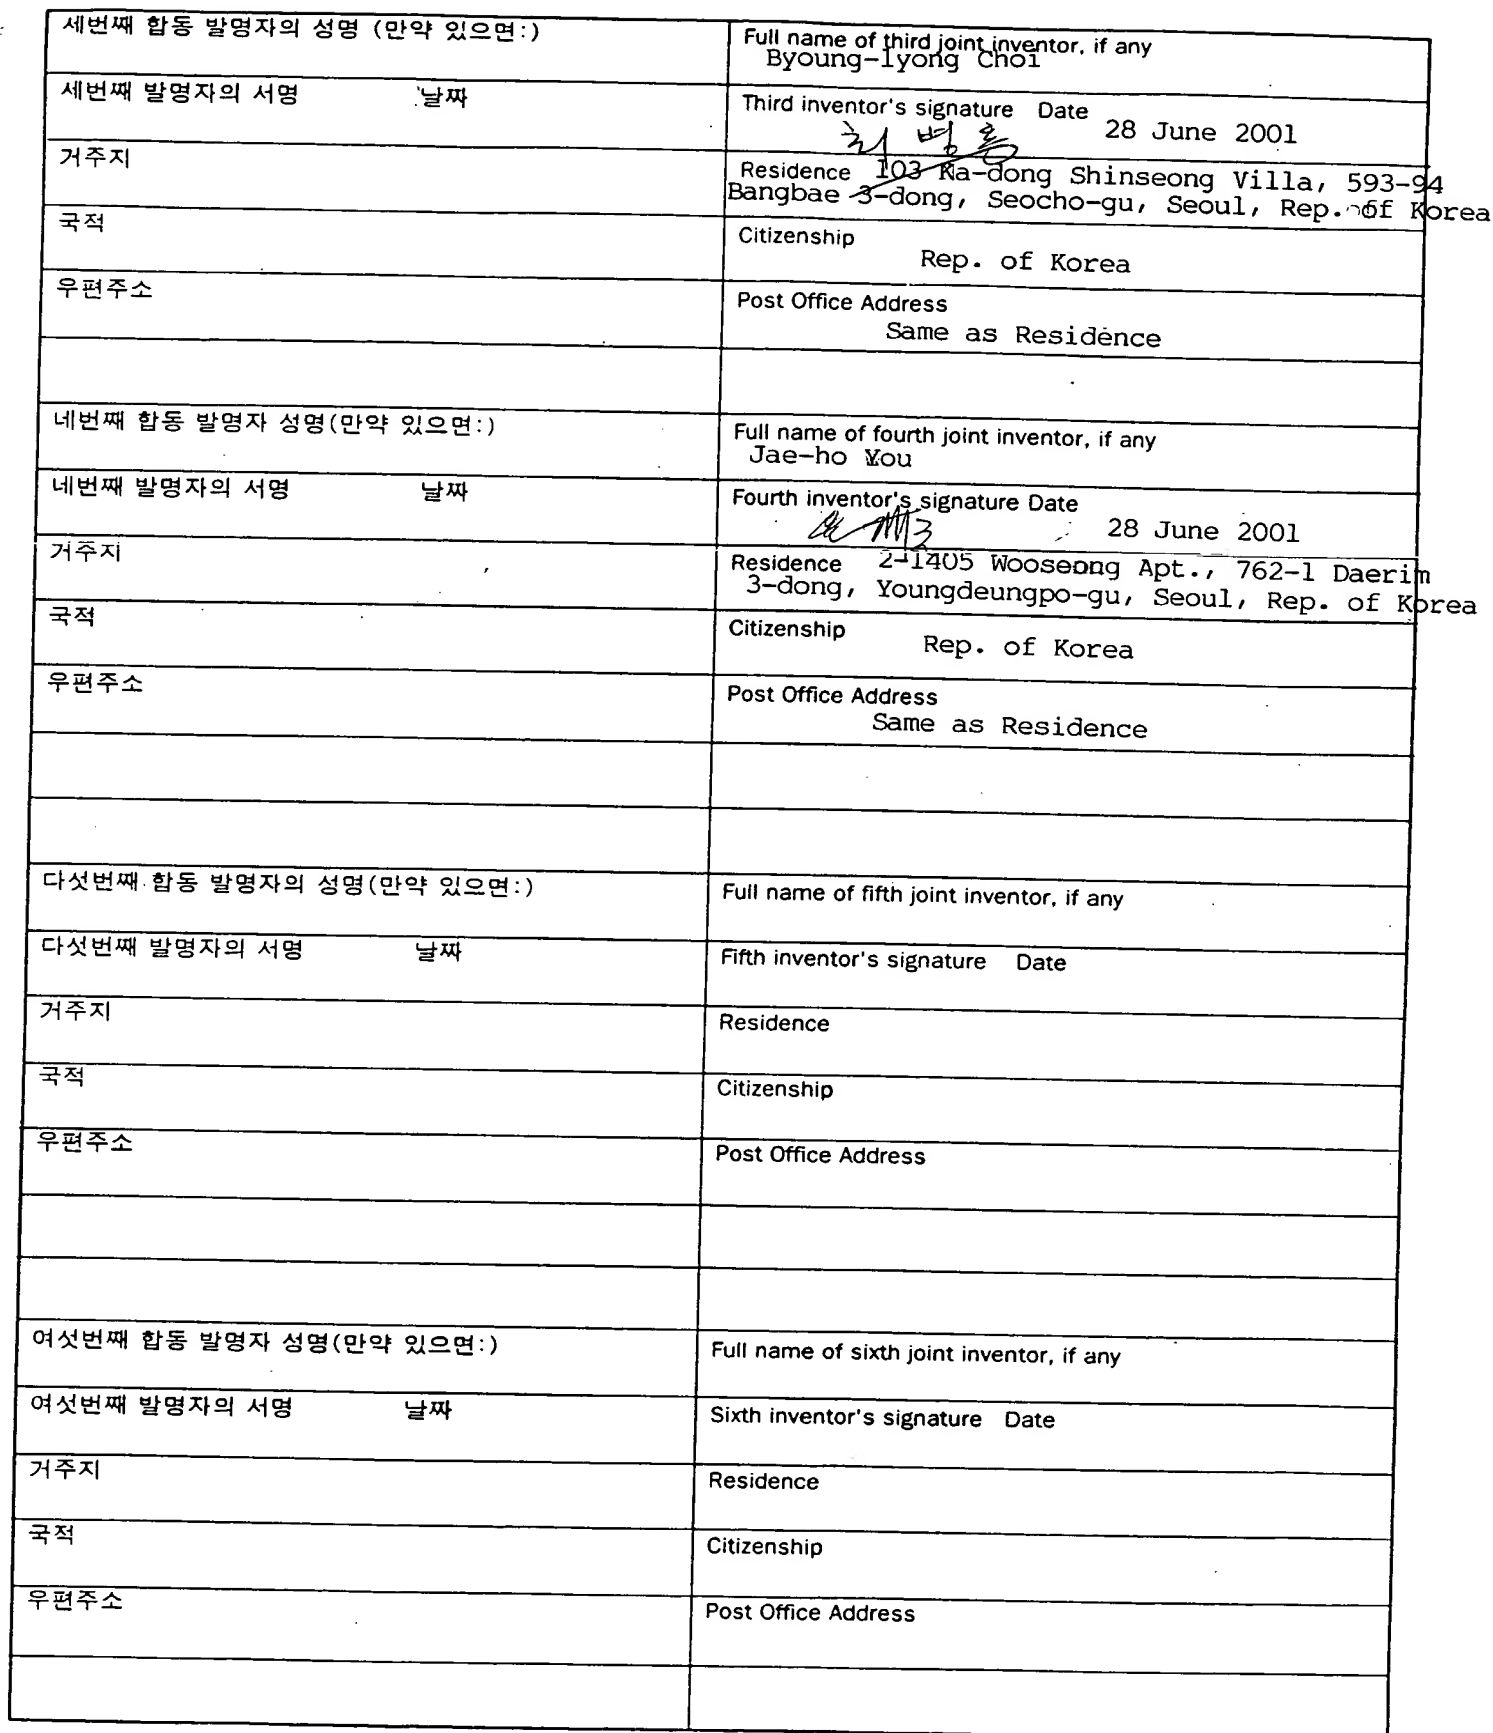 세번째 합동 발명자의 성명 (만약 있으면:)
Full name of third joint inventor, if any
Byoung-lyong Choi
세번째 발명자의 서명 날짜
Third inventor's signature Date
최병룡 28 June 2001
거주지
Residence 103 Ka-dong Shinseong Villa, 593-94
Bangbae 3-dong, Seocho-gu, Seoul, Rep. of Korea
국적
Citizenship
Rep. of Korea
우편주소
Post Office Address
Same as Residence
네번째 합동 발명자 성명(만약 있으면:)
Full name of fourth joint inventor, if any
Jae-ho You
네번째 발명자의 서명 날짜
Fourth inventor's signature Date
28 June 2001
거주지
Residence 2-1405 Wooseong Apt., 762-1 Daerim
3-dong, Youngdeungpo-gu, Seoul, Rep. of Korea
국적
Citizenship Rep. of Korea
우편주소
Post Office Address
Same as Residence
다섯번째 합동 발명자의 성명(만약 있으면:)
Full name of fifth joint inventor, if any
다섯번째 발명자의 서명 날짜
Fifth inventor's signature Date
거주지
Residence
국적
Citizenship
우편주소
Post Office Address
여섯번째 합동 발명자 성명(만약 있으면:)
Full name of sixth joint inventor, if any
여섯번째 발명자의 서명 날짜
Sixth inventor's signature Date
거주지
Residence
국적
Citizenship
우편주소
Post Office Address